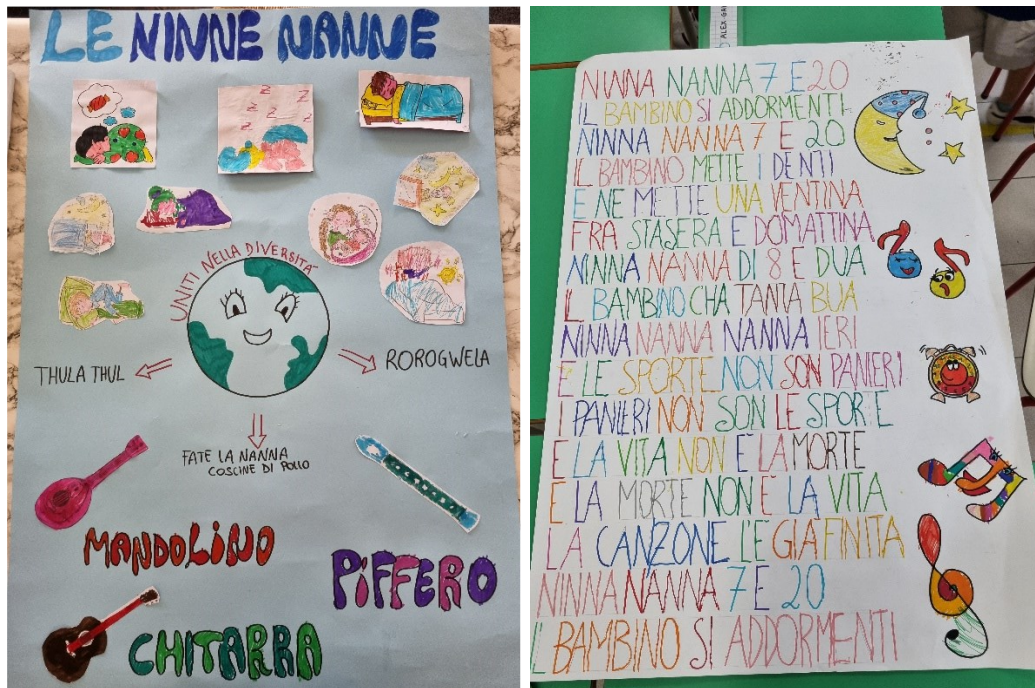 LE NINNE NANNE
Z
Z
Z
Z
Z
UNITI NELLA DIVERSITÀ
THULA THUL
ROROGWELA
FATE LA NANNA
COSCINE DI POLLO
MANDOLINO
PIFFERO
CHITARRA
NINNA NANNA 7 E 20
IL BAMBINO SI ADDORMENTI
NINNA NANNA 7 E 20
IL BAMBINO METTE I DENTI
E NE METTE UNA VENTINA
FRA STASERA E DOMATTINA
NINNA NANNA DI 8 E DUA
IL BAMBINO C'HA TANTA BUA
NINNA NANNA NANNA IERI
E LE SPORTE NON SON PANIERI
I PANIERI NON SON LE SPORTE
E LA VITA NON E LA MORTE
E LA MORTE NON E LA VITA
LA CANZONE L'E GIA FINITA
NINNA NANNA 7 E 20
IL BAMBINO SI ADDORMENTI